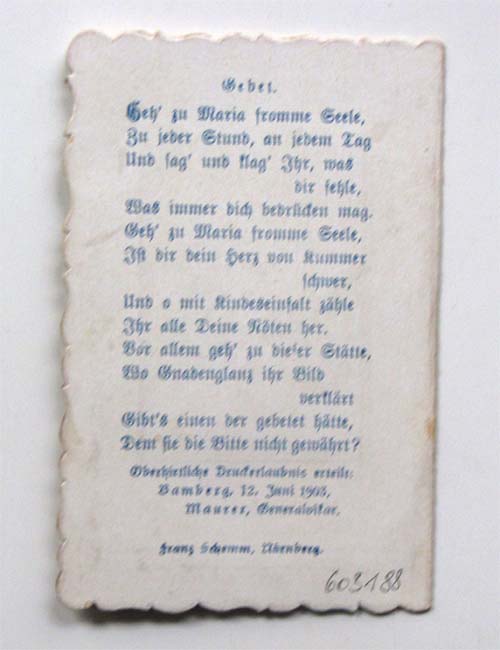 Gebet.
Geh' zu Maria fromme Seele,
Zu jeder Stund, an jedem Tag
Und sag' und klag' Ihr, was
dir fehle,
Was immer dich bedrücken mag.
Geh' zu Maria fromme Seele,
Ist dir dein Herz von Kummer
schwer,
Und o mit Kindeseinfalt zähle
Ihr alle Deine Nöten her.
Vor allem geh' zu dieser Stätte,
Wo Gnadenglanz ihr Bild
verklärt
Gibt's einen der gebetet hätte,
Dem sie die Bitte nicht gewährt?
Oberhirtliche Druckerlaubnis erteilt:
Bamberg, 12. Juni 1903,
Maurer, Generalvikar.
Franz Schemm, Nürnberg.
603188